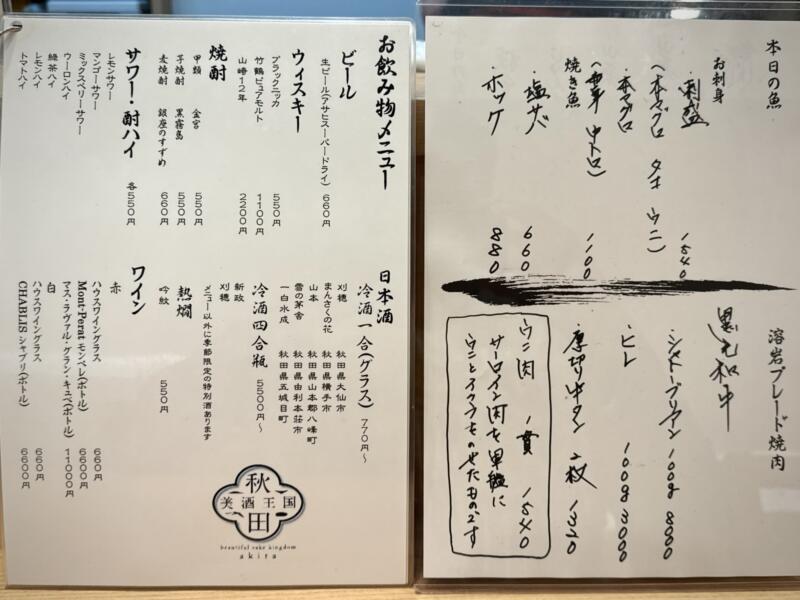 お飲み物メニュー
ビール
生ビール(アサヒスーパードライ) 660円
ウィスキー
ブラックニッカ 550円
竹鶴ピュアモルト 1100円
山崎12年 2200円
焼酎
甲類 金宮 550円
芋焼酎 黒霧島 550円
麦焼酎 銀座のすずめ 660円
サワー・酎ハイ 各550円
レモンサワー
マンゴーサワー
ミックスベリーサワー
ウーロンハイ
緑茶ハイ
レモンハイ
トマトハイ
日本酒
冷酒一合(グラス) 770円～
刈穂 秋田県大仙市
まんさくの花 秋田県横手市
山本 秋田県山本郡八峰町
雪の茅舎 秋田県由利本荘市
一白水成 秋田県五城目町
冷酒四合瓶 5500円～
新政
刈穂
メニュー以外に季節限定の特別酒あります
熱燗
吟紋 550円
ワイン
赤
ハウスワイングラス 660円
Mont-Perat モンペレ(ボトル) 6600円
マス・ラヴァル・グラン・キュベ(ボトル) 11000円
白
ハウスワイングラス 660円
CHABLIS シャブリ(ボトル) 6600円
秋田
美酒王国
beautiful sake kingdom
akita
本日の魚
お刺身
・刺盛 1540
(本マグロ タコ ウニ)
・本マグロ
中トロ) 1100
焼き魚
・塩サバ 660
・ホッケ 880
溶岩プレード焼肉
黒毛和牛
・シャトーブリアン 100g 8000
・ヒレ 100g 3000
・厚切り牛タン 2枚 1320
ウニ肉 一貫 1540
サーロイン肉を軍艦に
ウニとイクラをのせたものです